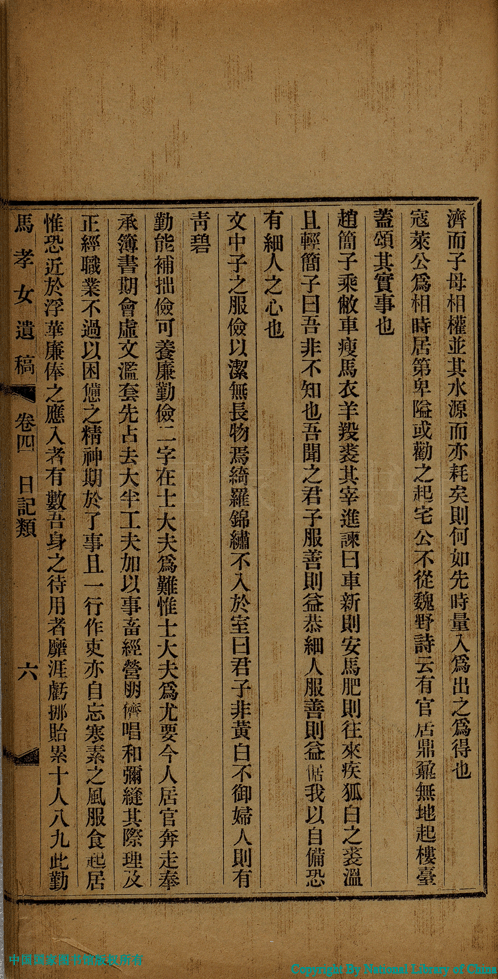 濟而子母相權並其水源而亦耗矣則何如先時量入爲出之爲得也
寇萊公爲相時居第卑隘或勸之起宅公不從魏野詩云有官居鼎鼐無地起樓臺
蓋頌其實事也
趙簡子乘敝車瘦馬衣羊羖裘其宰進諫曰車新則安馬肥則往來疾狐白之裘溫
且輕簡子曰吾非不知也吾聞之君子服善則益恭細人服善則益倨我以自備恐
有細人之心也
文中子之服儉以潔無長物焉綺羅錦繡不入於室曰君子非黃白不御婦人則有
靑碧
勤能補拙儉可養廉勤儉二字在士大夫爲難惟士大夫爲尤要今人居官奔走奉
承簿書期會虛文濫套先占去大半工夫加以事畜經營朋儕唱和彌縫其際理及
正經職業不過以困憊之精神期於了事且一行作吏亦自忘寒素之風服食起居
惟恐近於浮華廉俸之應入者有數吾身之待用者靡涯虧挪貽累十人八九此勤
馬孝女遺稿 卷四 日記類 六
中國國家图书馆
Copyright By National Library of China